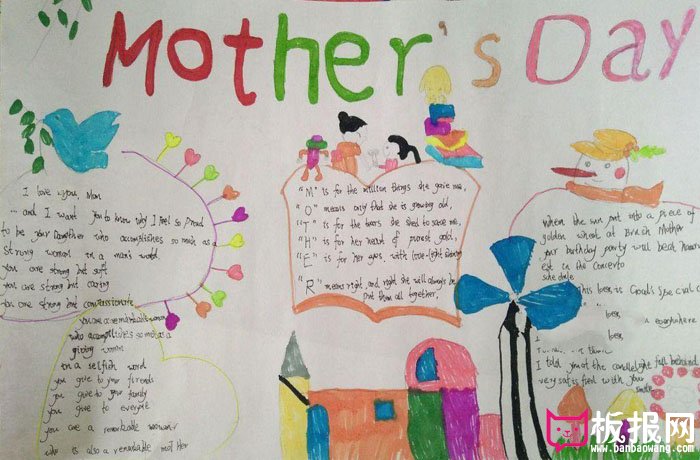 Mother's Day
I love you, Mom
... and I want you to know why I feel so proud
to be your Daughter who accomplishes so much as a
strong woman in a man's world.
you are strong but soft
you are strong but caring
you are strong but compassionate
you are a remarkable woman
who accomplishes so much as a
giving woman
in a selfish word
you give to your friends
you give to your family
you give to everyone
you are a remarkable woman
who is also a remarkable mother
"M" is for the million things she gave me,
"O" means only that she is growing old,
"T" is for the tears she shed to save me,
"H" is for her heart of purest gold,
"E" is for her eyes, with love-light shining
"R" means right, and right she will always be
put them all together,
When the sun put into a piece of
golden wheat at Mother
your birthday party will beat
est in the Concerto
she
This is God's special
everywhere
I told you of the candlelight fall behind
very satisfied with your
smile
板报网
www.banbaowang.com